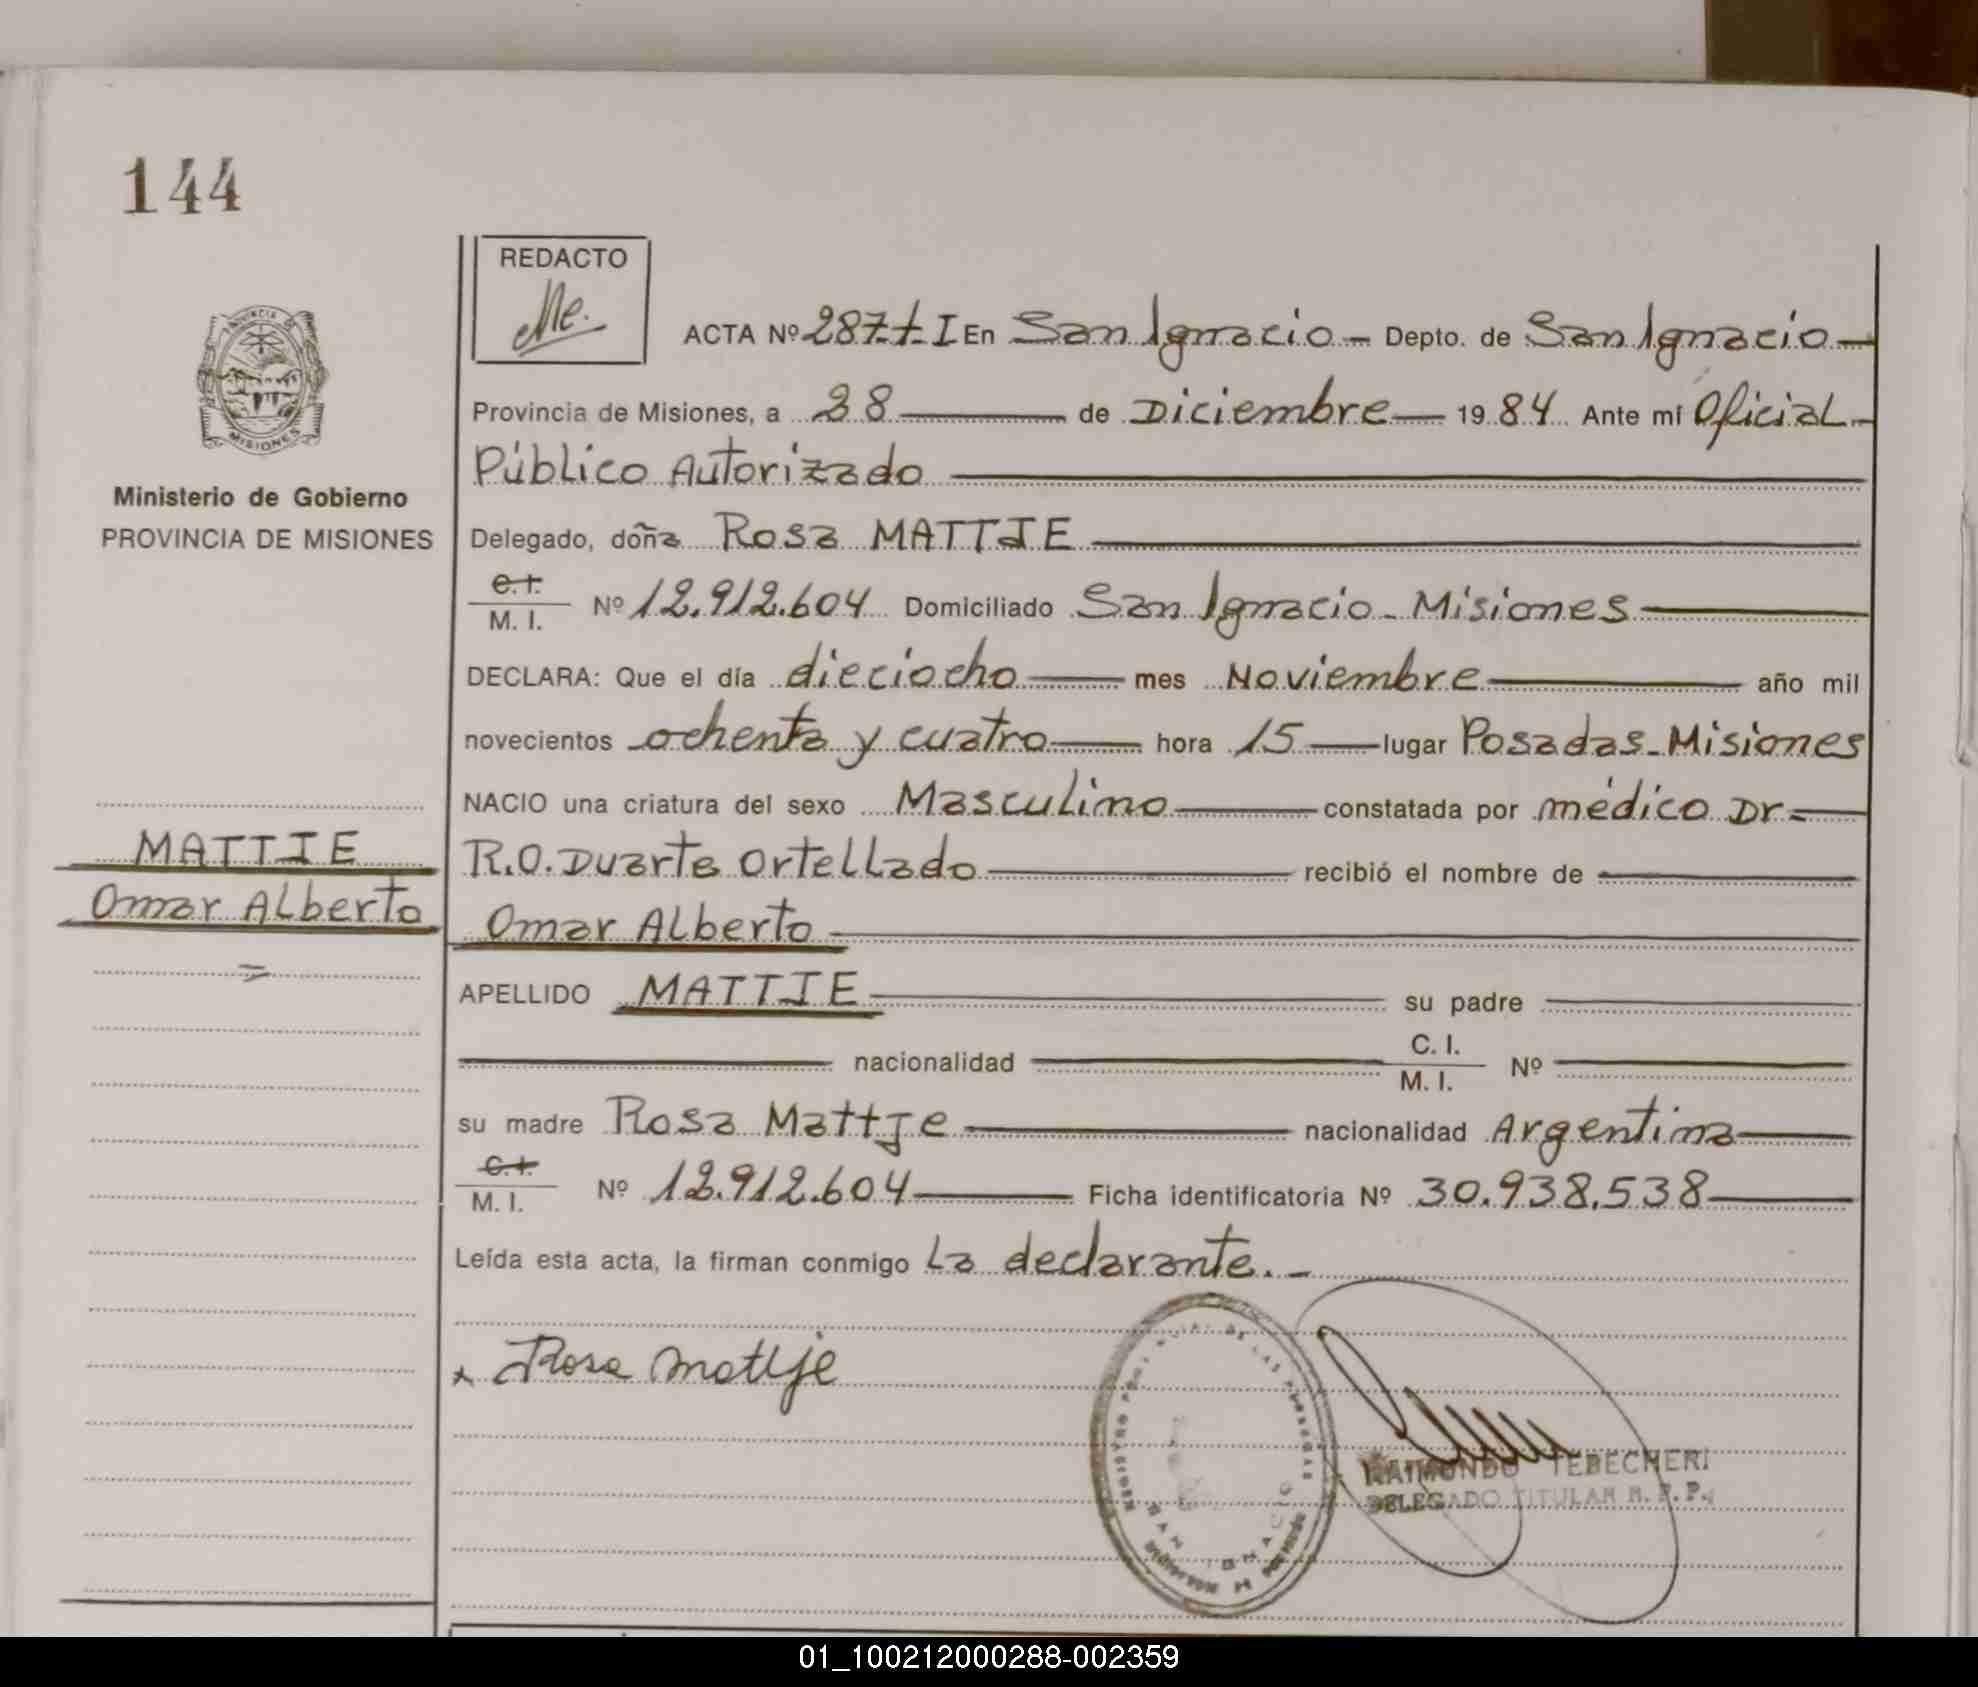 144
REDACTO
ACTA Nº 287-t-I En San Ignacio - Depto. de San Ignacio -
Provincia de Misiones, a 28 de Diciembre 1984 Ante mí Oficial
Público Autorizado
Ministerio de Gobierno
PROVINCIA DE MISIONES
Delegado, doña Rosa MATTJE
C.I.
M. I. Nº 12.912.604 Domiciliado San Ignacio - Misiones
DECLARA: Que el día dieciocho mes Noviembre año mil
novecientos ochenta y cuatro hora 15 lugar Posadas-Misiones
NACIO una criatura del sexo Masculino constatada por médico Dr=
MATTJE
R.O. Duarte Ortellado recibió el nombre de
Omar Alberto
Omar Alberto
=
APELLIDO MATTJE su padre
nacionalidad C. I.
M. I. Nº
su madre Rosa Mattje nacionalidad Argentina
C.I.
M. I. Nº 12.912.604 Ficha identificatoria Nº 30.938.538
Leída esta acta, la firman conmigo La declarante.-
x Rosa Mattje
RAIMUNDO TEBECHERI
DELEGADO TITULAR R. P. P.
SAN IGNACIO
01_100212000288-002359